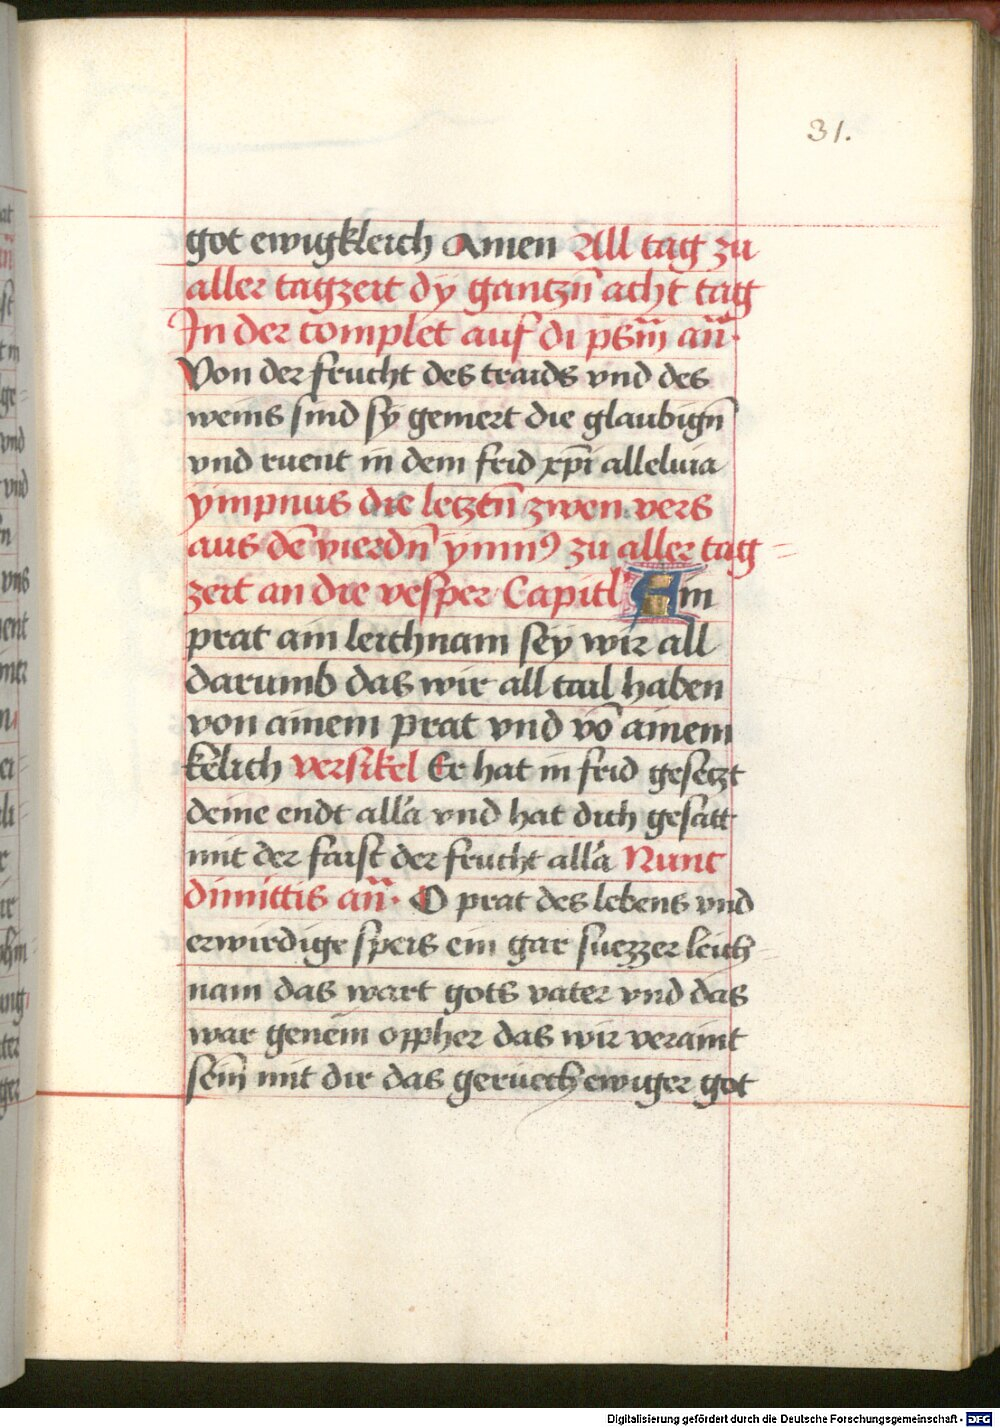 31.
got ewigkleich Amen All tag zu
aller tagzeit dÿ gantzn̄ acht tag
In der complet auf di psm̄ an̄·
Von der frucht des traids vnd des
weins sind sÿ gemert die glaubign̄
vnd ruent in dem frid xp̄i alleluia
ympnus die letztn̄ zwen vers
aus de᷑ vierdn̄ ymnꝰ zu aller tag
zeit an die vesper Capitl Ain
prat ain leichnam seÿ wir all
darumb das wir all tail haben
von ainem prat vnd vō ainem
kelich versikel Er hat in frid gesetzt
deine endt alla vnd hat dich gesatt
mit der faist der frucht alla Nunc
dimittis an̄· O prat des lebens vnd
erwirdige speis ein gar suezzer leich
nam das wart gots vater vnd das
war genem oppher das wir veraint
sein mit dir das geruech ewiger got
Digitalisierung gefördert durch die Deutsche Forschungsgemeinschaft - DFG